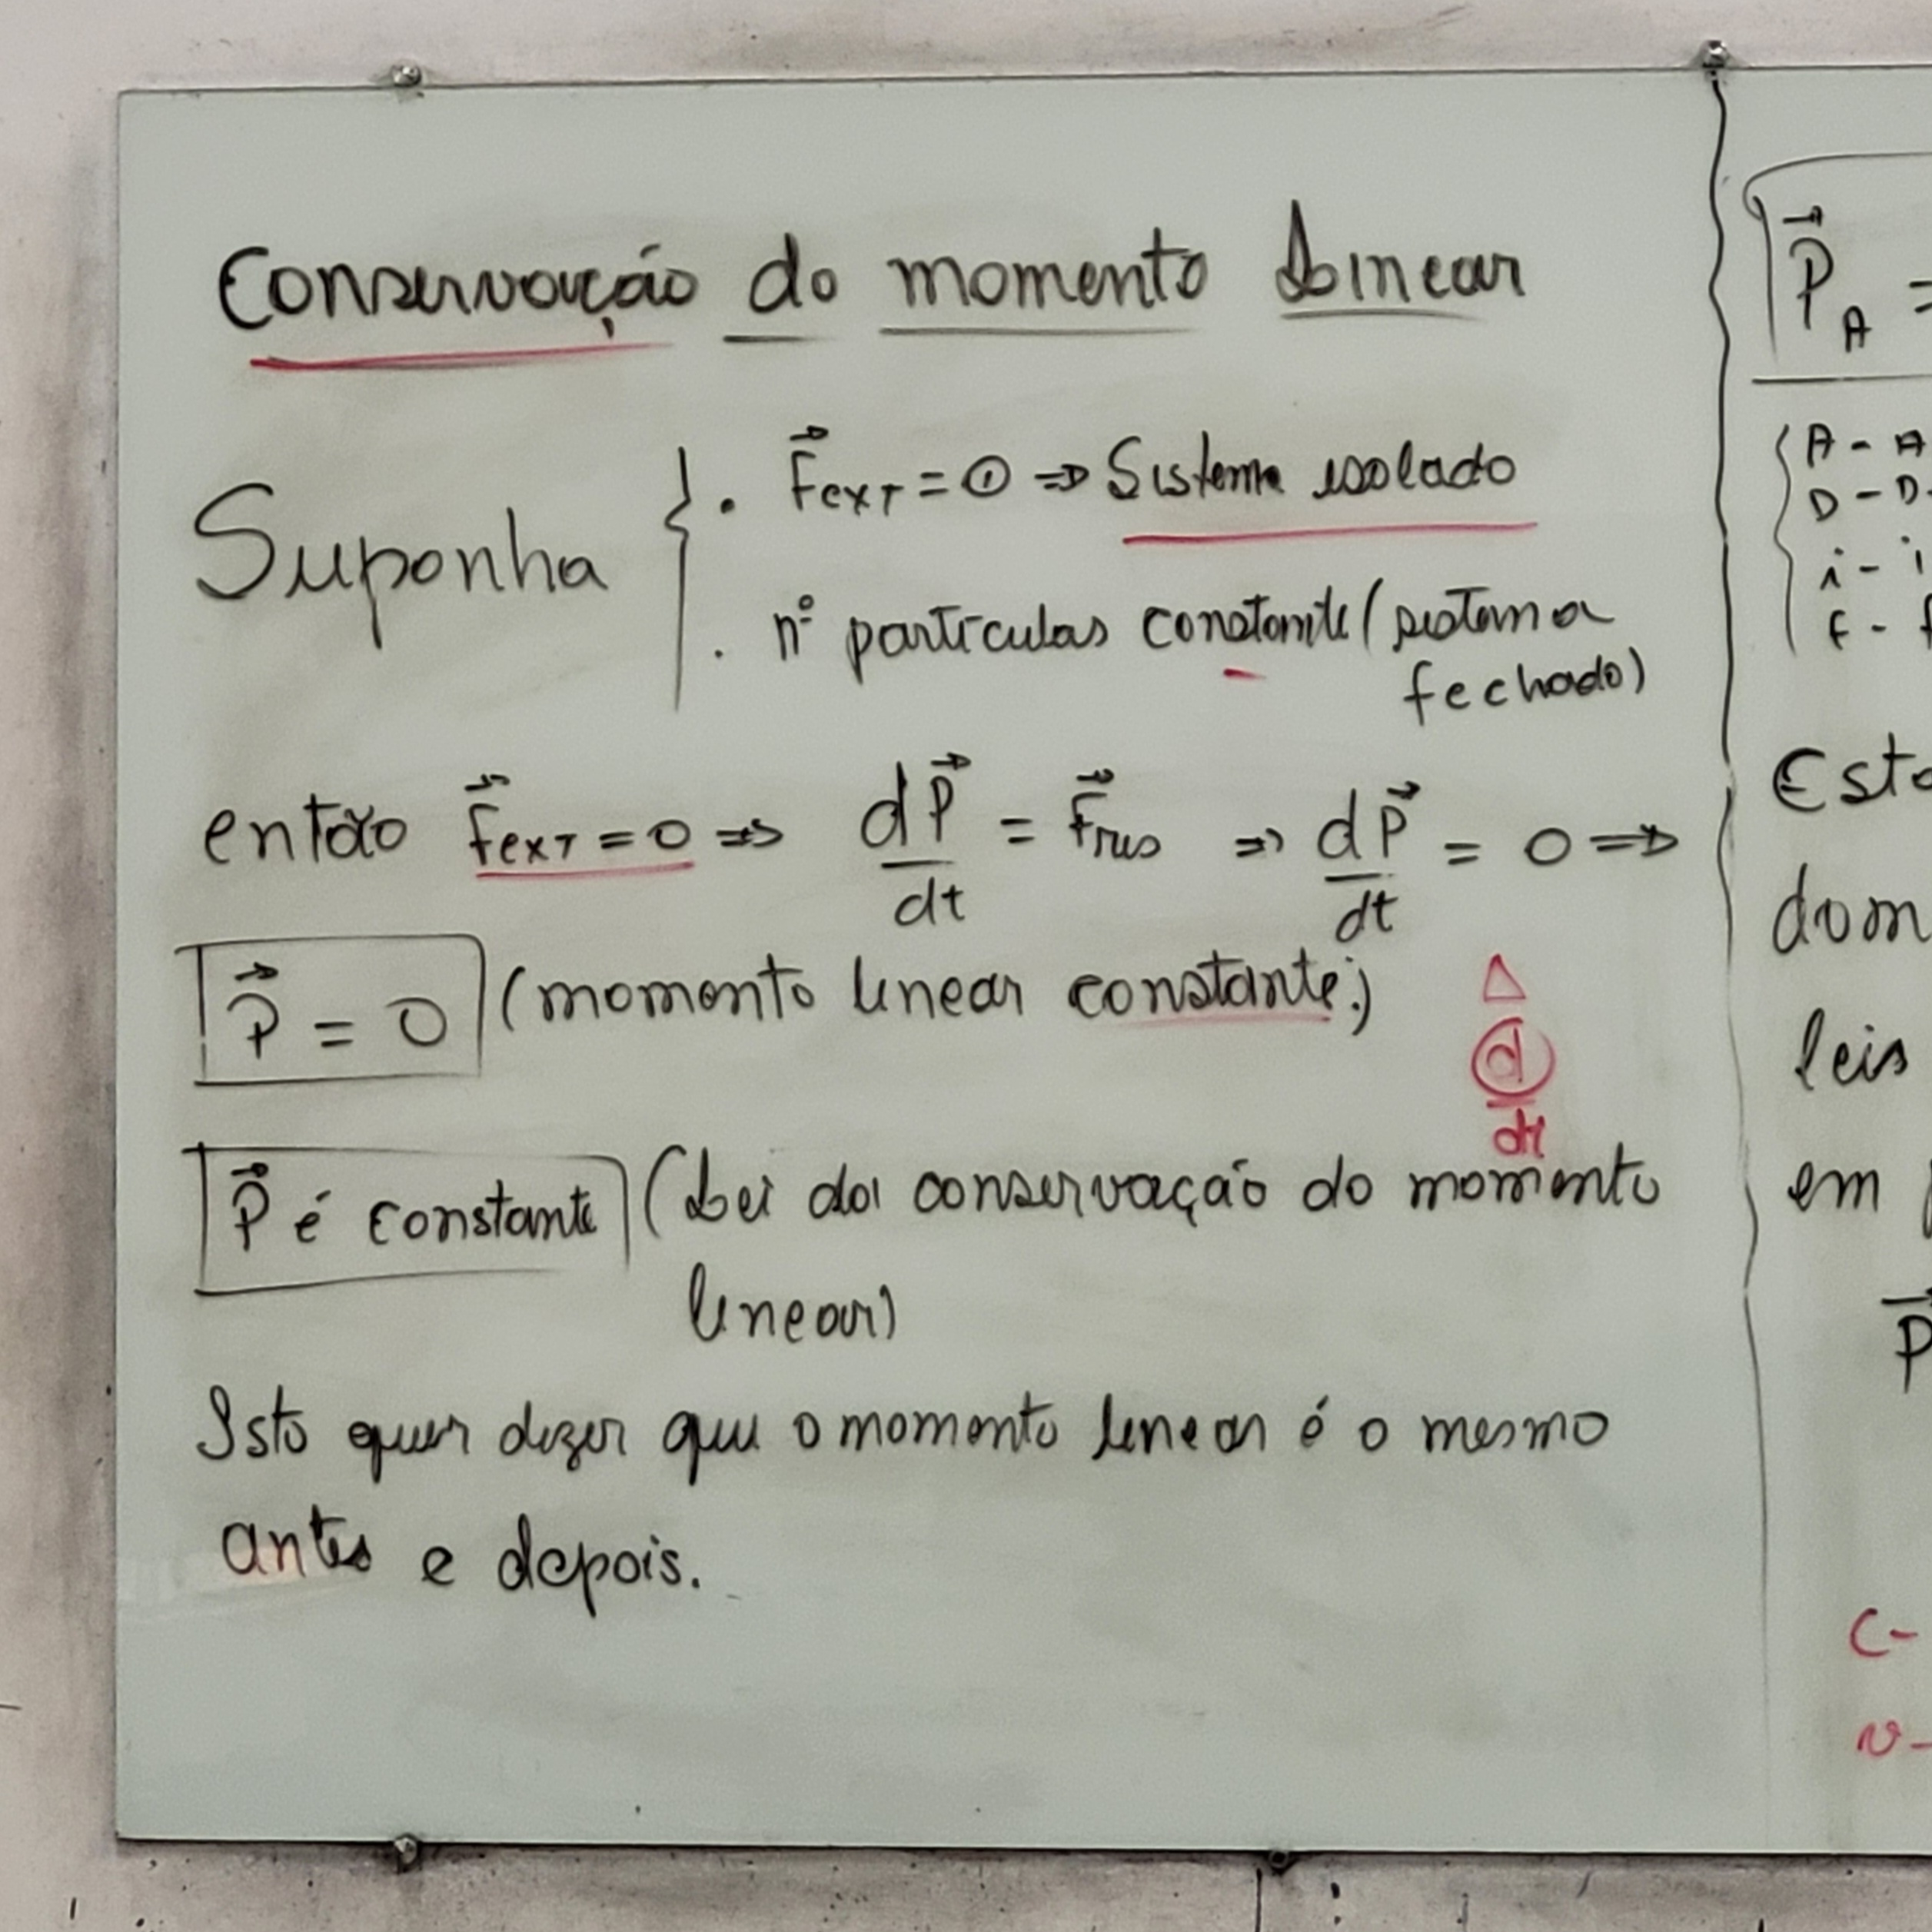 Conservação do momento Linear
Suponha { . F⃗ext = 0 ⇒ Sistema isolado
. nº partículas constante (sistema
fechado)
então F⃗ext = 0 ⇒ dP⃗/dt = F⃗res ⇒ dP⃗/dt = 0 ⇒
P⃗ = 0 (momento linear constante.)
Δ
d/dt
P⃗ é constante (Lei da conservação do momento
linear)
Isto quer dizer que o momento linear é o mesmo
antes e depois.
P⃗A =
A - A
D - D
i - i
f - f
dom
leis
em
P
C-
v-